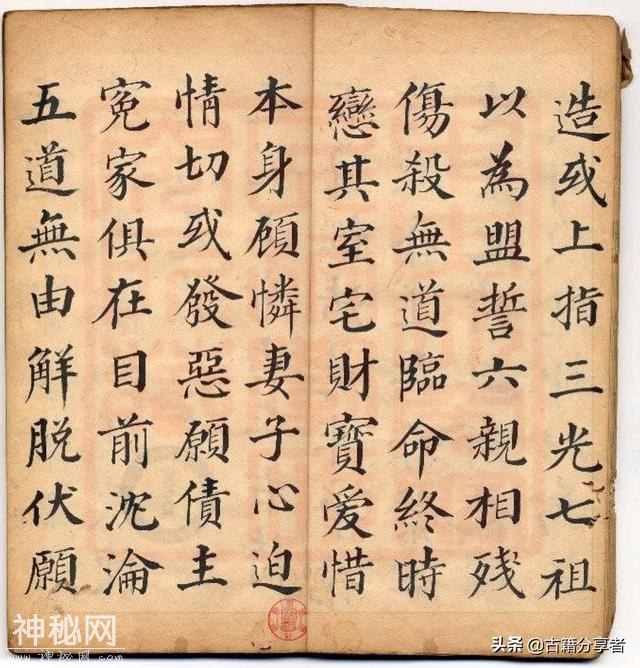 造或上指三光七祖
以為盟誓六親相残
傷殺無道臨命終時
戀其室宅財寶爱惜
本身顾憐妻子心迫
情切或發惡願債主
寃家俱在目前沈淪
五道無由解脱伏願
神秘网
www.shenmiw.com
头条 @古籍分享者